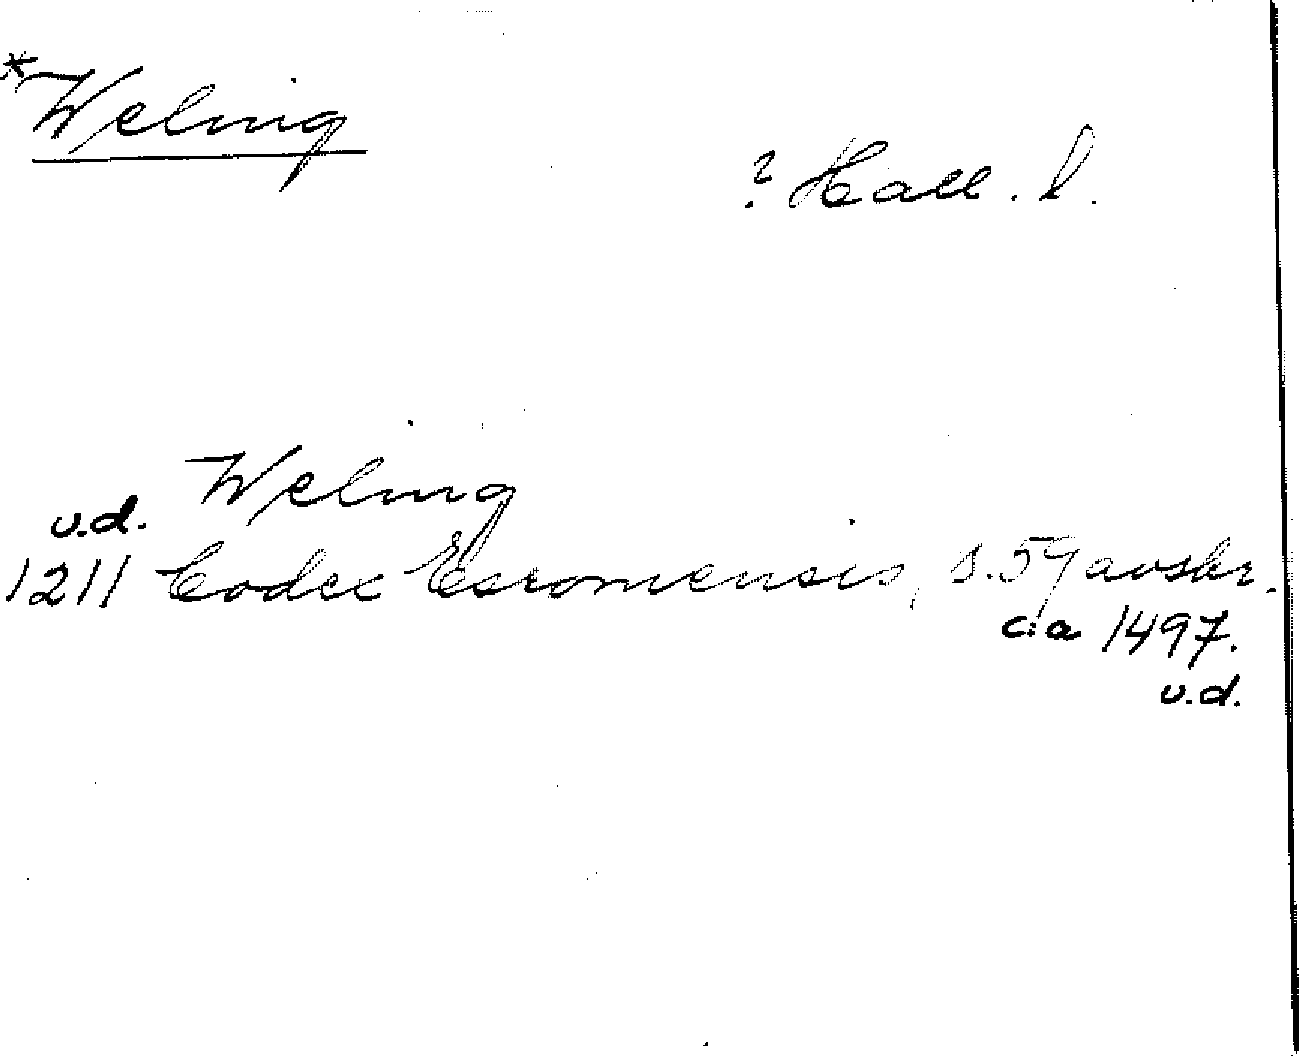 *Weling
? Hall. l.
Weling
u.d.
1211 Codex Esromensis, s. 59 avskr.
c:a 1497.
u.d.